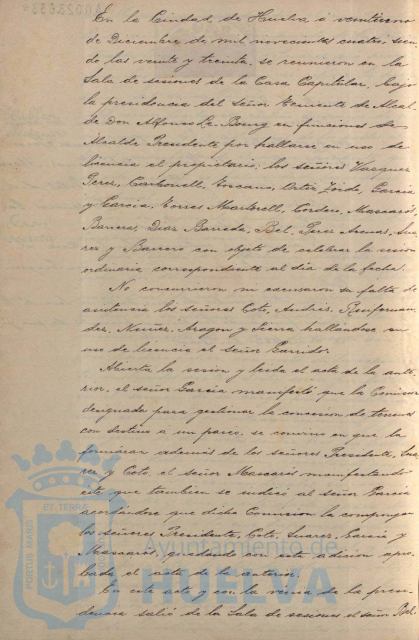 En la Ciudad, de Huelva á veintiuno
de Diciembre de mil novecientos cuatro, sien
do las veinte y treinta, se reunieron en la
Sala de sesiones de la Casa Capitular, bajo
la presidencia del Señor Teniente de Alcal
de Don Alfonso Le-Bourg en funciones de
Alcalde Presidente por hallarse en uso de
licencia el propietario; los señores Vazquez
Perez, Carbonell, Toscano, Ortiz, Zoido, Garcia
y Garcia, Torres Cordero, Mascarós,
Barrera, Diaz Barreda, Bel, Perez Sua
rez y Barrero con objeto de celebrar la sesion
ordinaria correspondiente al dia de la fecha.
No concurrieron ni excusaron su falta de
asistencia los señores Coto, Andrés,
dez, Muñiz, Aragon y Sierra hallándose en
uso de licencia el señor Garrido.
Abierta la sesion y leida el acta de la ante
rior, el señor Garcia manifestó que la Comision
designada para gestionar la concesion de terrenos
con destino a un parco, se convino en que la
formaran además de los señores Presidente, Sua
rez y Coto, el señor Mascarós manifestando
este que tambien se indicó al señor Garcia
acordándose que dicha Comision la compongan
los señores Presidente, Coto, Suarez, Garcia y
Mascarós, quedando con esta adicion apro
bada el acta de la anterior.
En este acto y con la venia de la presi
dencia salió de la Sala de sesiones el señor Bel.
PORTUS MARIS
ET TERRAE
Ayuntamiento de
HUELVA